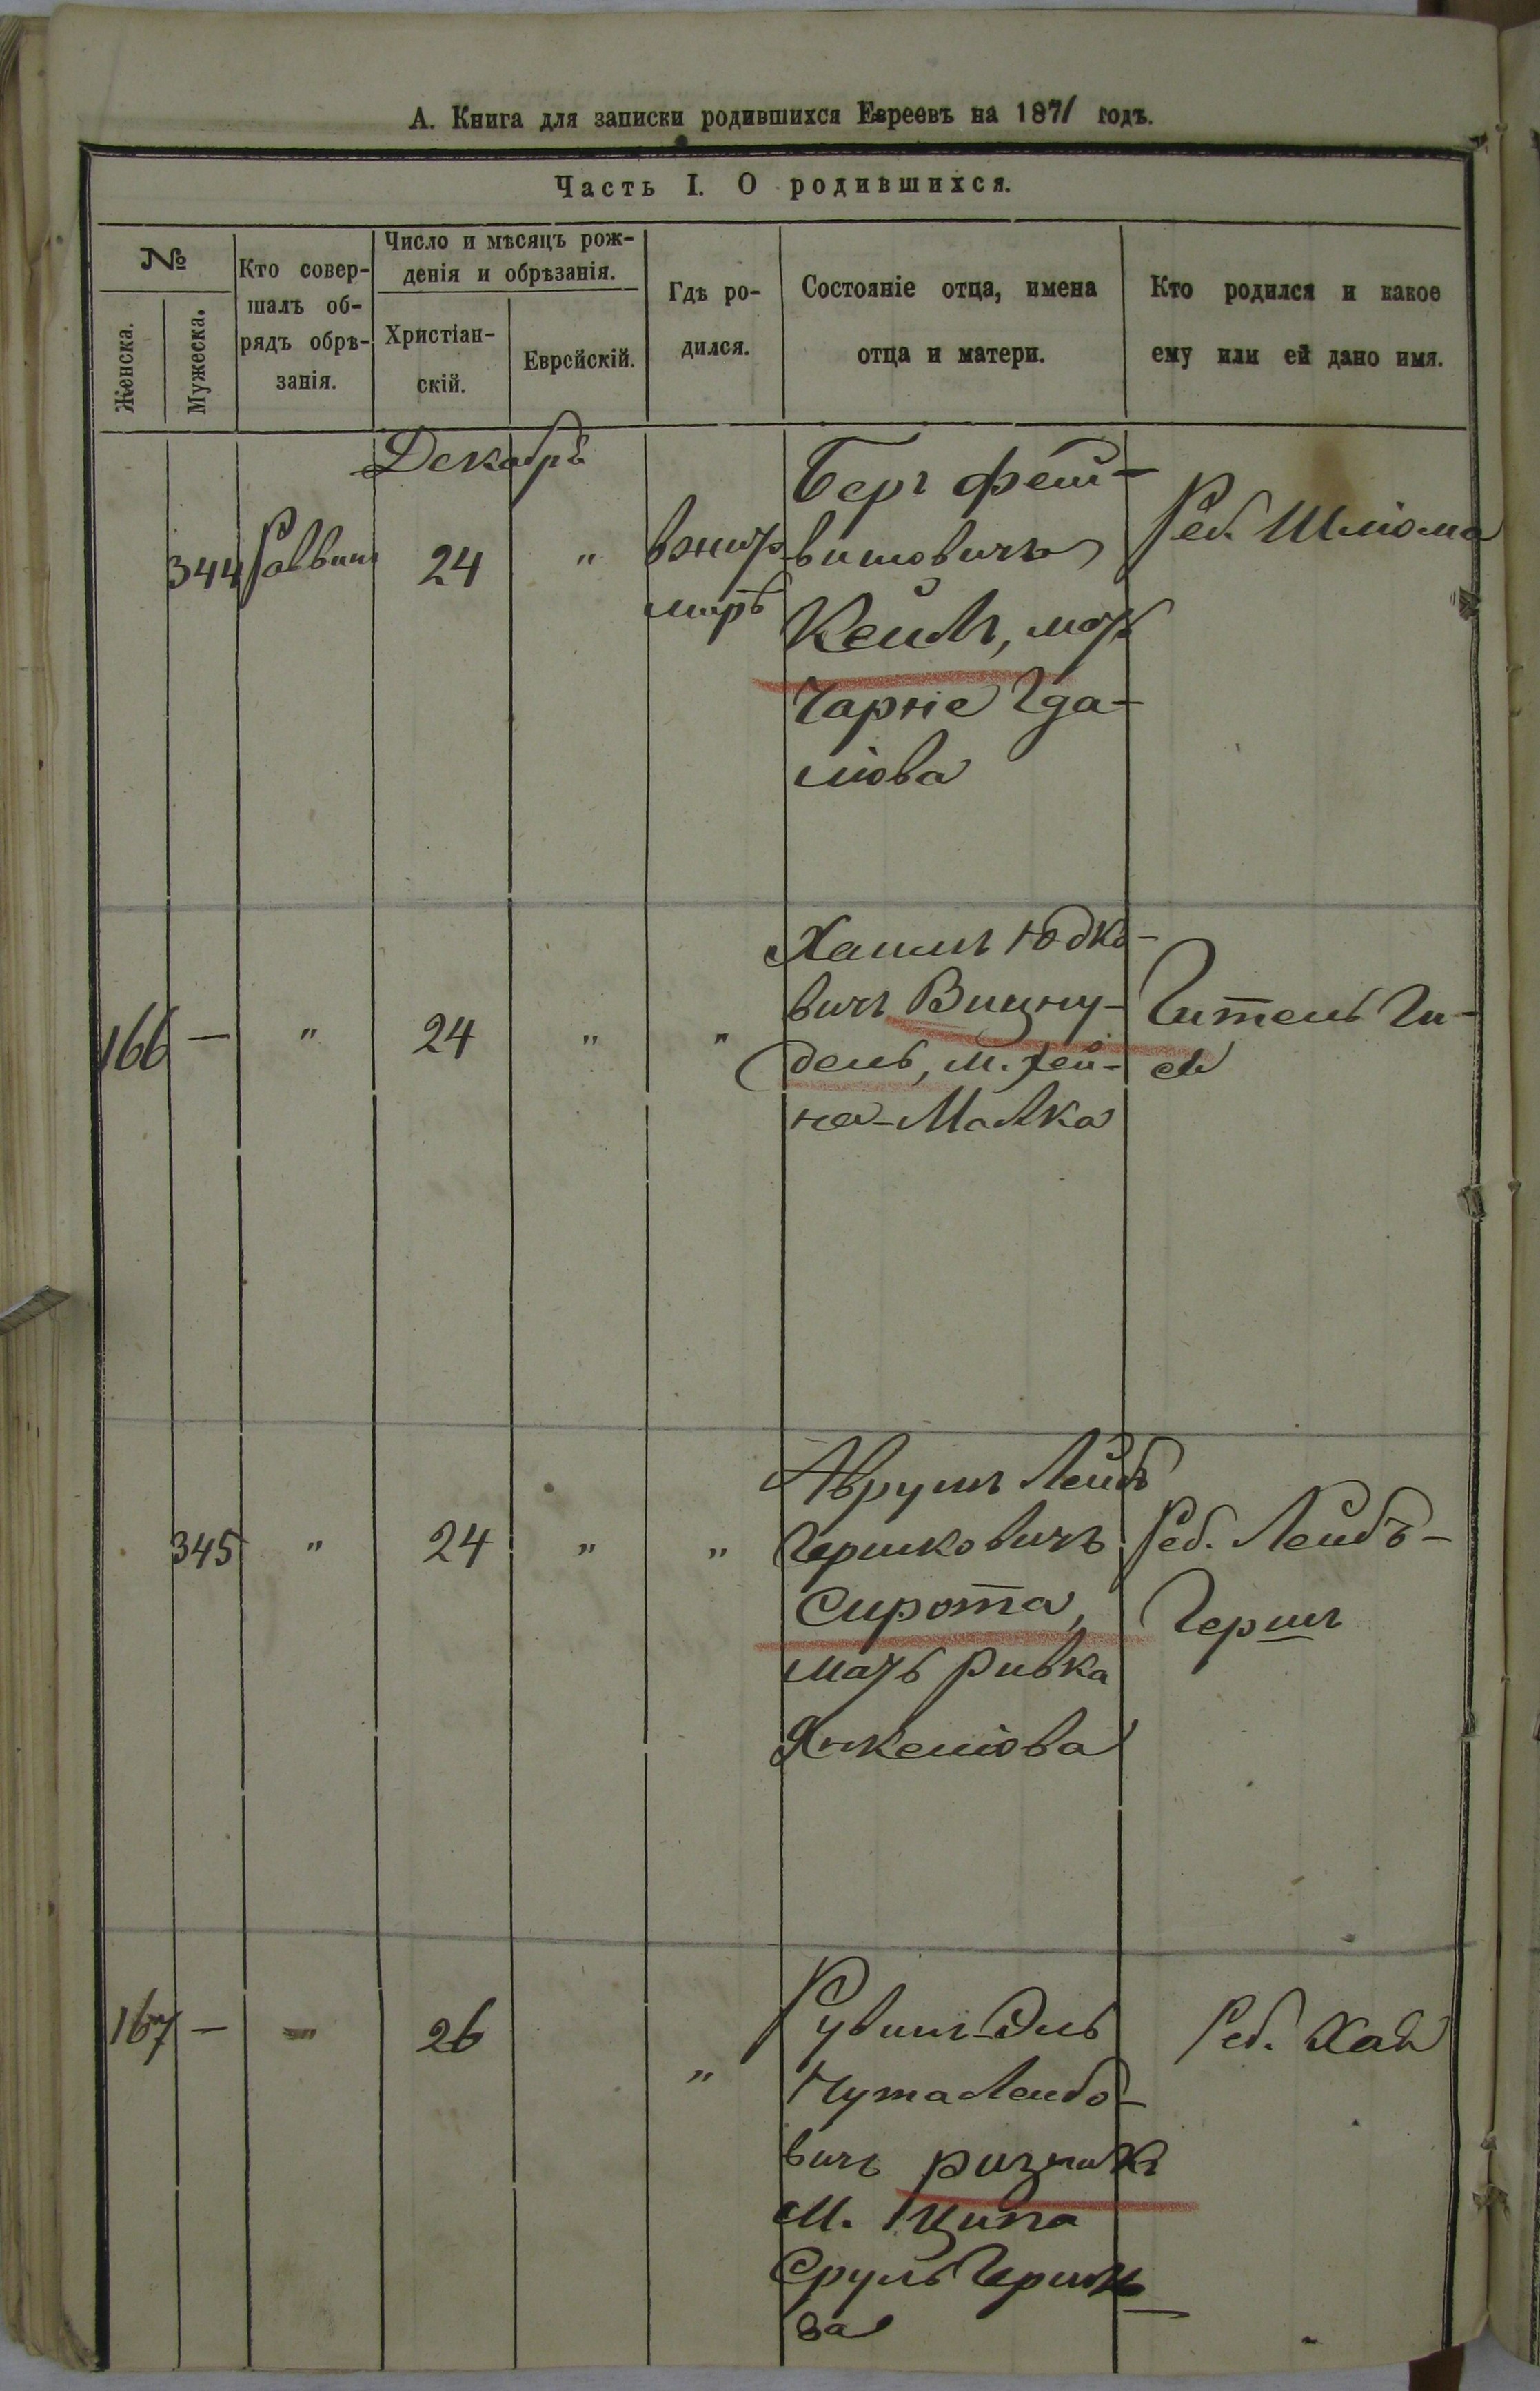 А. Книга для записки родившихся Евреевъ на 1871 годъ.
Часть I. О родившихся.
№
Женска.
Мужеска.
Кто совер-
шалъ об-
рядъ обрѣ-
занія.
Число и мѣсяцъ рож-
денія и обрѣзанія.
Христіан-
скій.
Еврейскій.
Гдѣ ро-
дился.
Состояніе отца, имена
отца и матери.
Кто родился и какое
ему или ей дано имя.
Декабрь
344
24
"
Беръ
витовичъ
Кейлъ, мать
Чарніе Гда-
ліова
Реб. Шліома
166 — " 24 " "
Хаимъ Юдко-
вичъ
дель, м. Хей-
на-Малка
Гитель Ги-
345 " 24 " "
Аврумъ Лейбъ
Гершковичъ
Сирота,
мать Ривка
Янкеліова
Реб. Лейбъ-
Гершъ
167 — " 26 "
Рувинъ-Эль
Нута Лейбо-
вичъ Ризникъ
М. Ципа
Сруль Гершко
ва
Реб. Хая